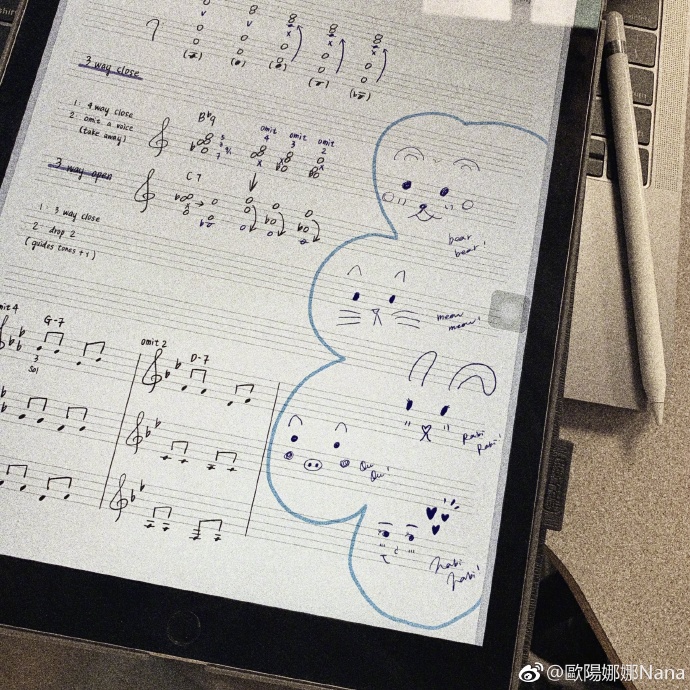 3 way close
1. 4 way close
2. omit a voice
(take away)
B♭9
omit
4
omit
3
omit
2
3 way open
C7
1. 3 way close
2. drop 2
(guides tones + 1)
bear
bear!
meow
meow!
Rabi
Rabi!
omit 4
G-7
3
Sol
omit 2
D-7
Qu
Qu!
Nabi
Nabi!
@歐陽娜娜Nana